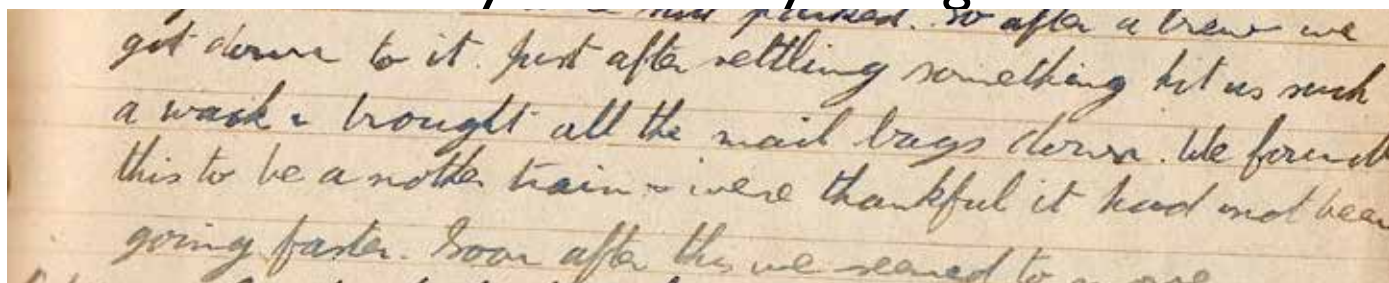 . So after a brew we
got down to it. Just after settling something hit us such
a wack & brought all the mail bags down. We found
this to be another train & were thankful it had not been
going faster. Soon after this we seemed to move